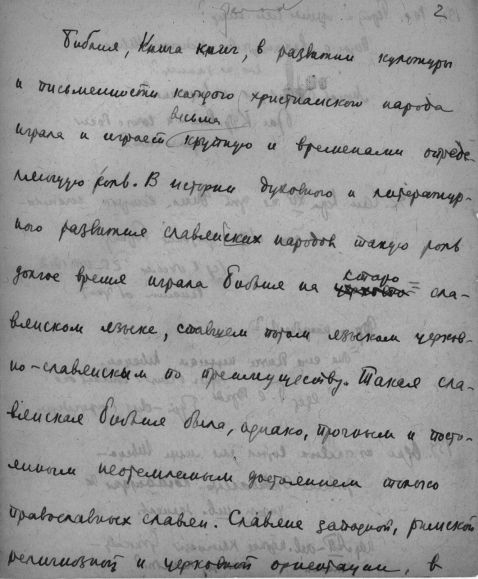 2
Библия, Книга книг, в развитии культуры
и письменности каждого христианского народа
весьма
играла и играет крупную и временами опреде-
ляющую роль. В истории духовного и литератур-
ного развития славянских народов такую роль
старо
долгое время играла Библия на сла-
вянском языке, ставшем потом языком церков-
но-славянским по преимуществу. Такая сла-
вянская Библия была, однако, прочным и посто-
янным неотемлемым достоянием только
православных славян. Славяне западной, римской
религиозной и церковной ориентации, в